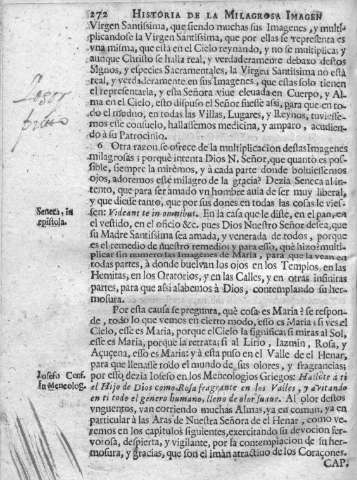 272 HISTORIA DE LA MILAGROSA IMAGEN
Virgen Santissima, que siendo muchas sus Imagenes, y multi-
plicandose la Virgen Santissima, que por ellas se representa es
vna misma, que està en el Cielo reynando, y no se multiplica: y
aunque Christo se halla real, y verdaderamente debaxo destos
Signos, y especies Sacramentales, la Virgen Santissima no està
real, y verdaderamente en sus Imagenes, que estas solo tienen
el representarla, y esta Señora viue eleuada en Cuerpo, y Al-
ma en el Cielo, esto dispuso el Señor fuesse assi, para que en to-
do el mundo, en todas las Villas, Lugares, y Reynos, tuviesse-
mos este consuelo, hallassemos medicina, y amparo, acudien-
do à su Patrocinio.
6 Otra razon se ofrece de la multiplicacion destas Imagenes
milagrosas: porquè intenta Dios N. Señor, que quanto es pos-
sible, siempre la mirèmos, y à cada parte donde boluiessemos
ojos, adoremos esse milagro de la gracia? Dezia Seneca al in-
tento, que para ser amado vn hombre auia de ser muy liberal,
y que diesse tanto, que por sus dones en todas las cosas le vies-
Seneca, in
epistola.
sen: Videant te in omnibus. En la casa que le diste, en el pan, en
el vestido, en el oficio &c. pues Dios Nuestro Señor desea, que
su Madre Santissima sea amada, y venerada de todos, porque
es el remedio de nuestro remedio; y para esso, què hizo? multi-
plicar sin numero las Imagenes de Maria, para que la vean en
todas partes, à donde buelvan los ojos, en los Templos, en las
Hemitas, en los Oratorios, y en las Calles, y en otras infinitas
partes, para que assi alabemos à Dios, contemplando su her-
mosura.
Por esta causa se pregunta, què cosa es Maria? se respon-
de, todo lo que vemos en cierto modo, esso es Maria: si ves el
Cielo, esse es Maria, porque el Cielo la significa; si miras al Sol,
esse es Maria, porque la retrata; si al Lirio, Iazmin, Rosa, y
Açuçena, esso es Maria: y à esta puso en el Valle de el Henar,
para que llenasse todo el mundo de sus olores, y fragrancias;
Josefo Conf.
in Meneolog.
por esso dezia Josefo en los Meneologios Griegos: Hallòte à ti
el Hijo de Dios como Rosa fragrante en los Valles, y
en ti todo el genero humano, lleno de olor suaue. Al olor destos
vnguentos, van corriendo muchas Almas, ya en comun, ya en
particular à las Aras de Nuestra Señora de el Henar, como ve-
remos en los capitulos siguientes, exercitando su devocion fer-
vorosa, despierta, y vigilante, por la contemplacion de su her-
mosura, y gracias, que son el imàn atractiuo de los Coraçones.
CAP.